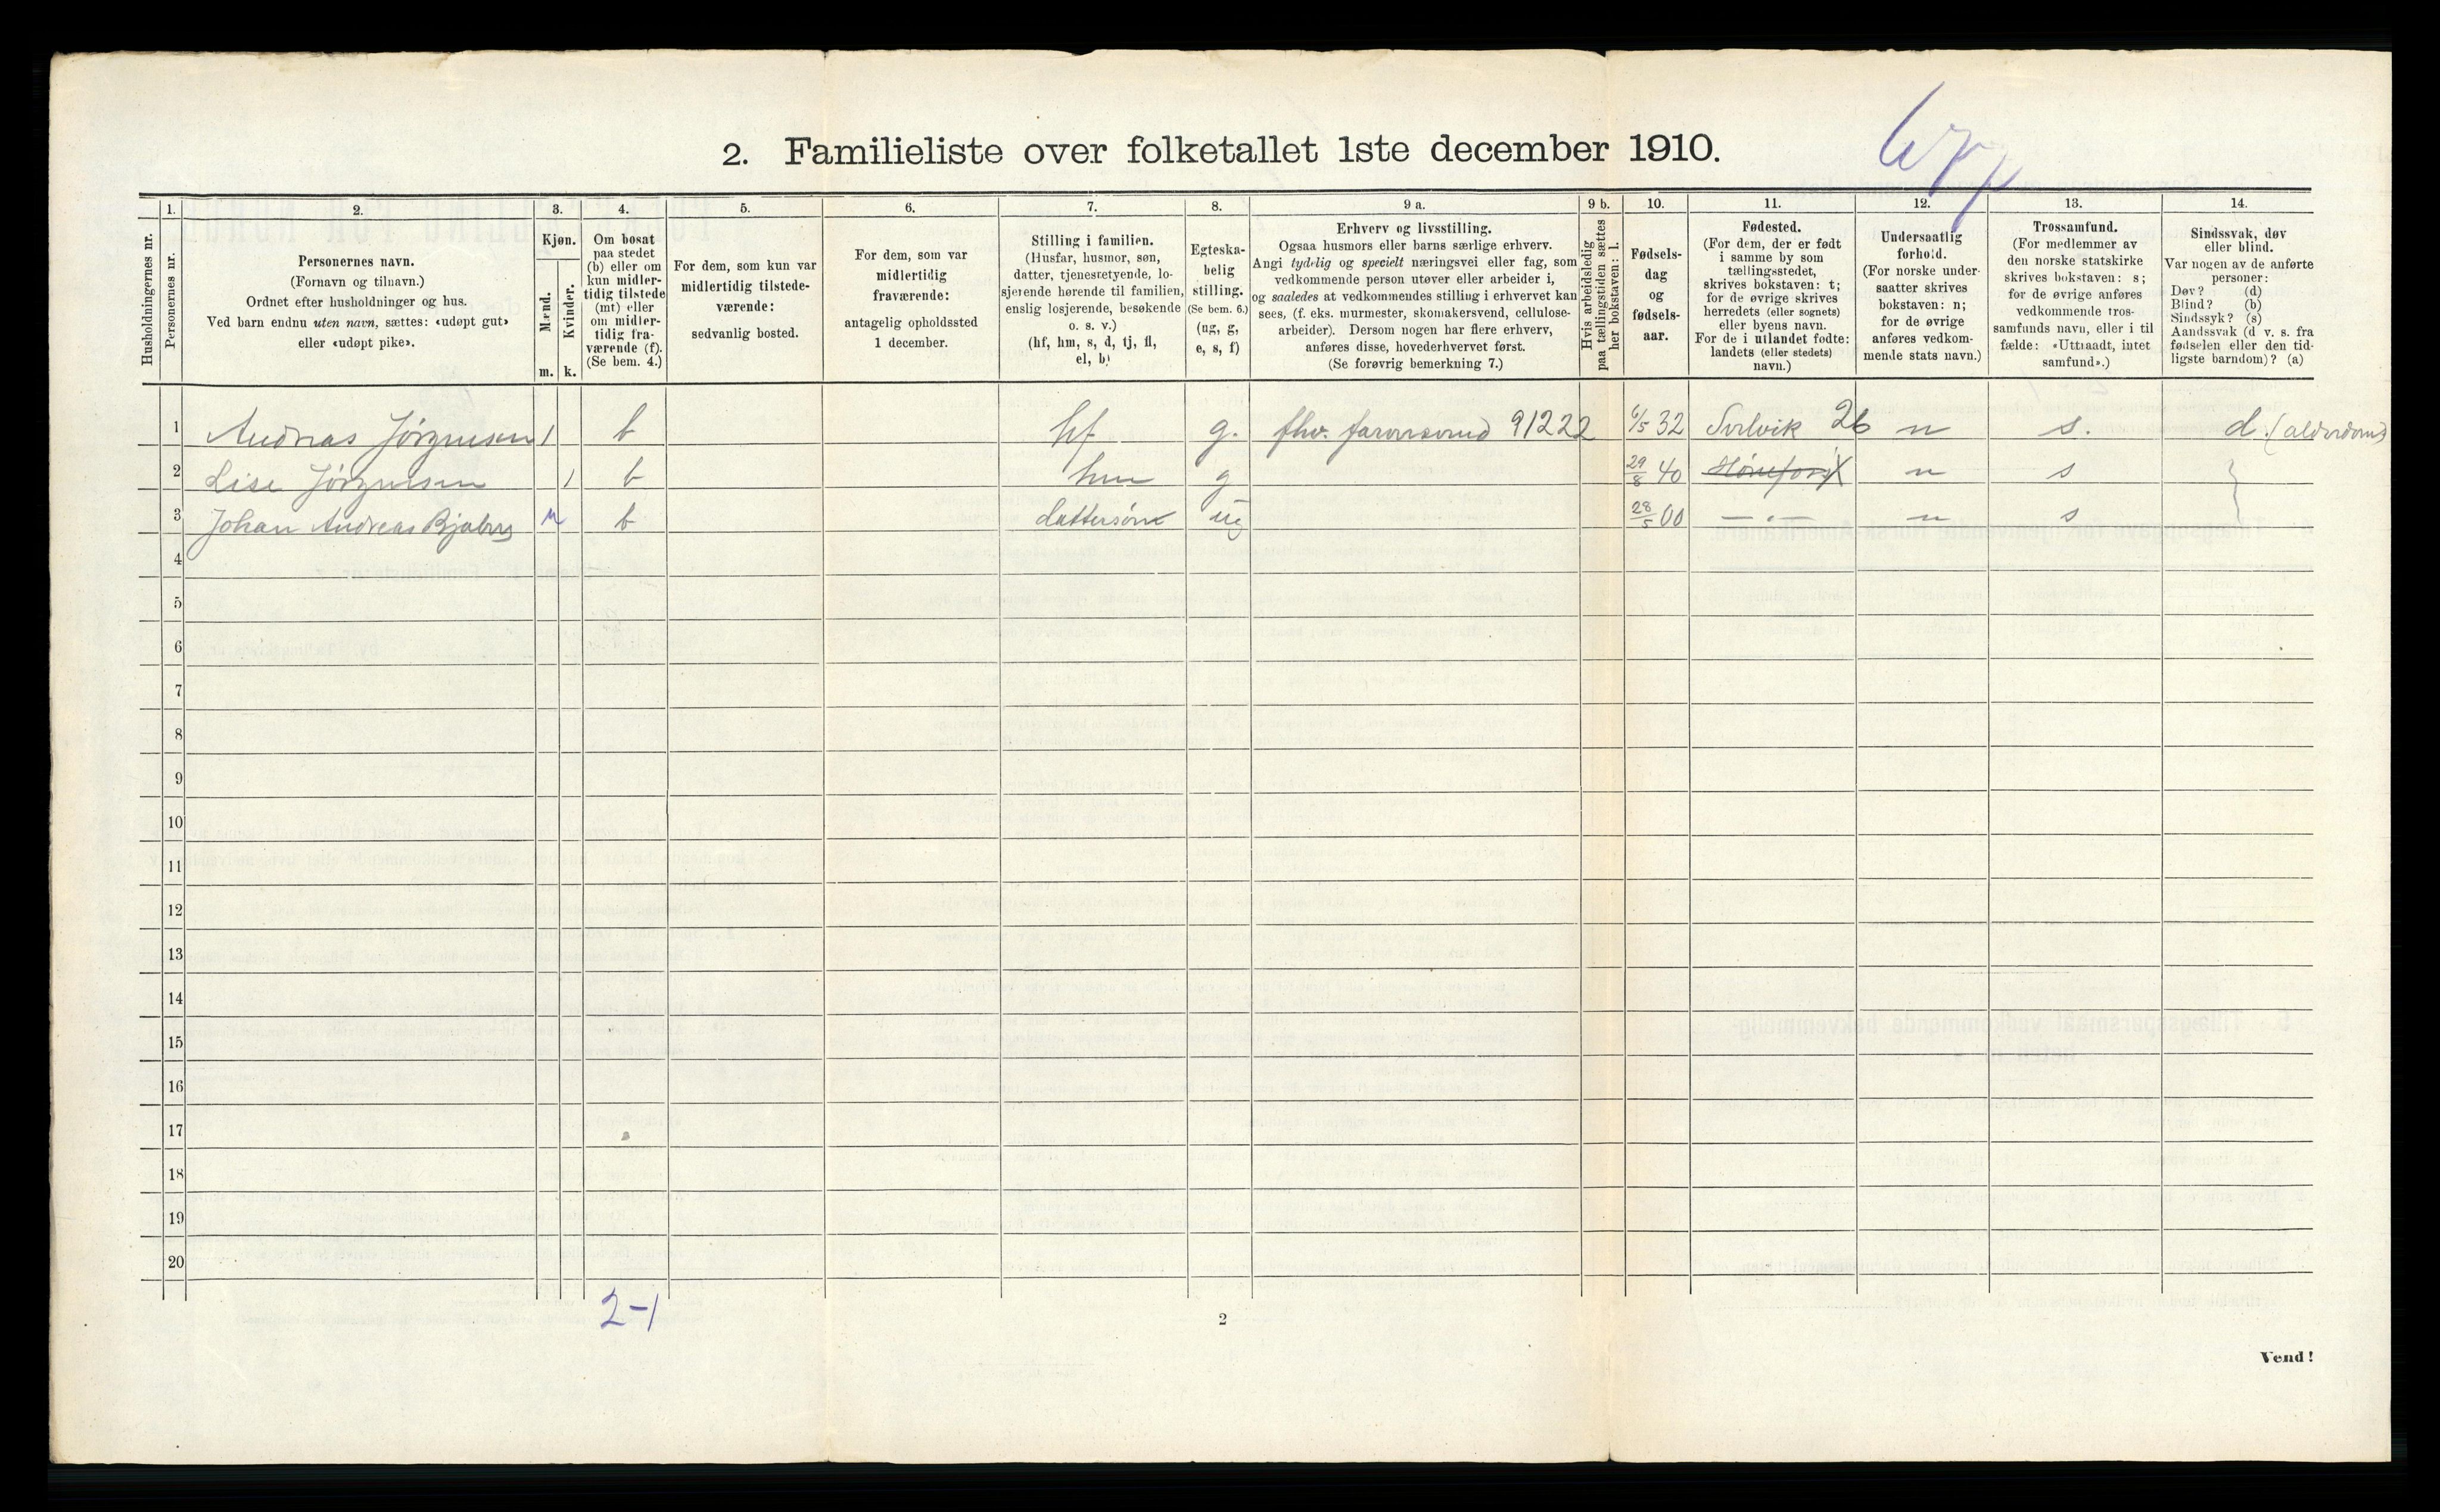 2. Familieliste over folketallet 1ste december 1910.
Husholdningernes nr.
1.
Personernes nr.
2.
Personernes navn.
(Fornavn og tilnavn.)
Ordnet efter husholdninger og hus.
Ved barn endnu uten navn, sættes: «udøpt gut»
eller «udøpt pike».
3.
Kjøn.
Mænd.
Kvinder.
m. k.
4.
Om bosat
paa stedet
(b) eller om
kun midler-
tidig tilstede
(mt) eller
om midler-
tidig fra-
værende (f).
(Se bem. 4.)
5.
For dem, som kun var
midlertidig tilstede-
værende:
sedvanlig bosted.
6.
For dem, som var
midlertidig
fraværende:
antagelig opholdssted
1 december.
7.
Stilling i familien.
(Husfar, husmor, søn,
datter, tjenestetyende, lo-
sjerende hørende til familien,
enslig losjerende, besøkende
o. s. v.)
(hf, hm, s, d, tj, fl,
el, b)
8.
Egteska-
belig
stilling.
(Se bem. 6.)
(ug, g,
e, s, f)
9 a.
Erhverv og livsstilling.
Ogsaa husmors eller barns særlige erhverv.
Angi tydelig og specielt næringsvei eller fag, som
vedkommende person utøver eller arbeider i,
og saaledes at vedkommendes stilling i erhvervet kan
sees, (f. eks. murmester, skomakersvend, cellulose-
arbeider). Dersom nogen har flere erhverv,
anføres disse, hovederhvervet først.
(Se forøvrig bemerkning 7.)
9 b.
Hvis arbeidsledig
paa tællingstiden sættes
her bokstaven: l.
10.
Fødsels-
dag
og
fødsels-
aar.
11.
Fødested.
(For dem, der er født
i samme by som
tællingsstedet,
skrives bokstaven: t;
for de øvrige skrives
herredets (eller sognets)
eller byens navn.
For de i utlandet fødte:
landets (eller stedets)
navn.)
12.
Undersaatlig
forhold.
(For norske under-
saatter skrives
bokstaven: n;
for de øvrige
anføres vedkom-
mende stats navn.)
13.
Trossamfund.
(For medlemmer av
den norske statskirke
skrives bokstaven: s;
for de øvrige anføres
vedkommende tros-
samfunds navn, eller i til
fælde: «Uttraadt, intet
samfund».)
14.
Sindssvak, døv
eller blind.
Var nogen av de anførte
personer:
Døv? (d)
Blind? (b)
Sindssyk? (s)
Aandssvak (d v. s. fra
fødselen eller den tid-
ligste barndom)? (a)
1 Andreas Jørgensen 1 b hf g. fhv. 91222 6/5 32 Svelvik 26 n s. d. (alderdom)
2 Lise Jørgensen 1 b hm g 29/8 40 Hønefos X n s
3 Johan Andreas m b dattersøn ug 28/5 00 — „ — n s
4
5
6
7
8
9
10
11
12
13
14
15
16
17
18
19
20
2-1
2
Vend!